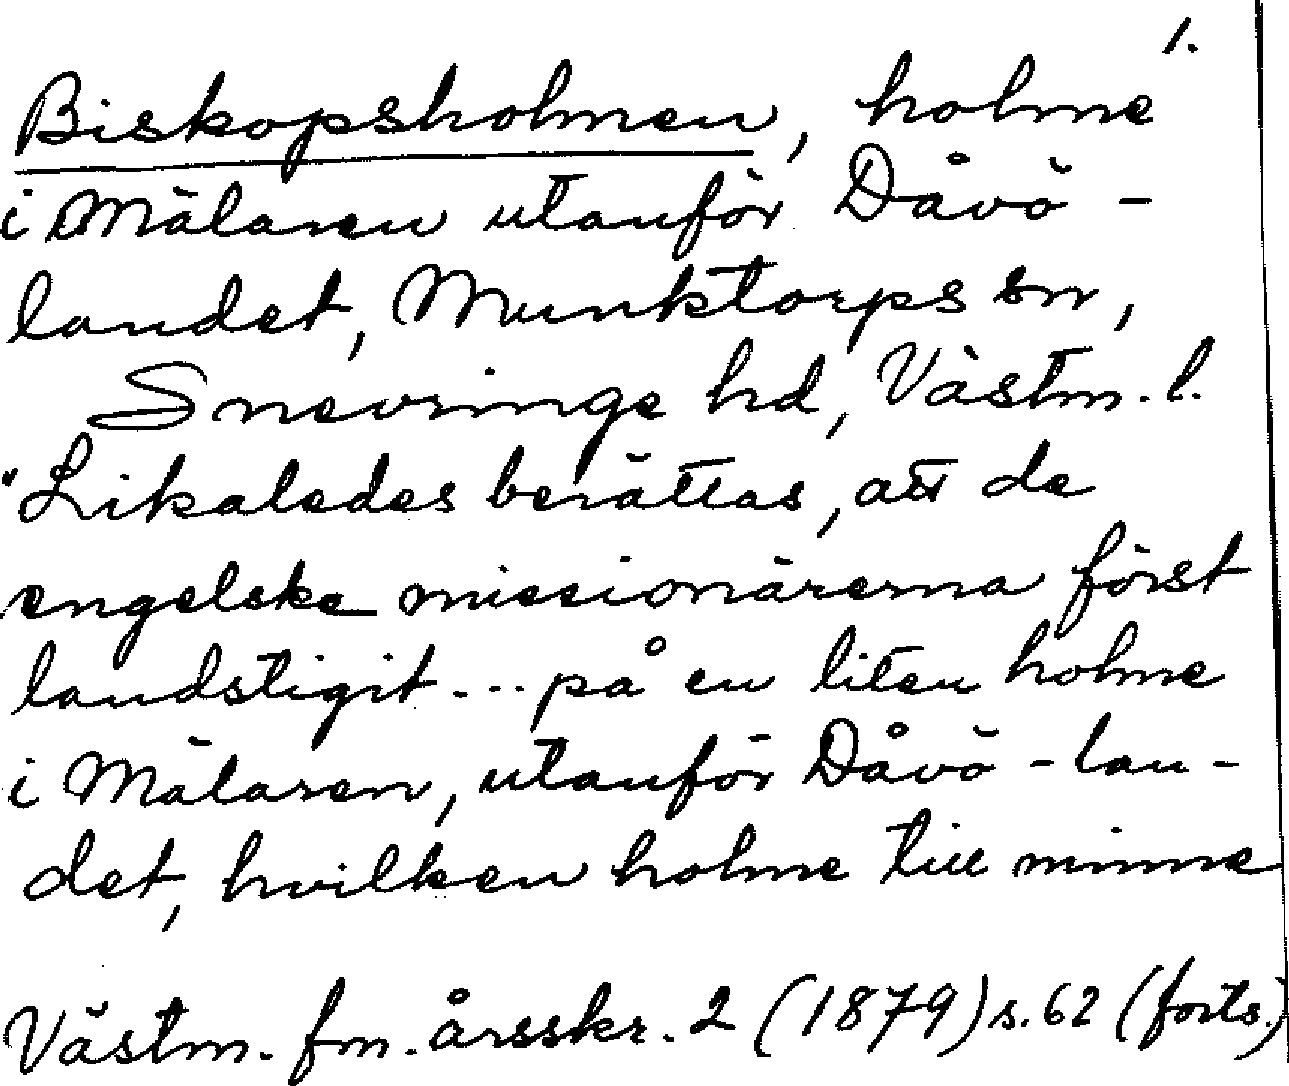 1.
Biskopsholmen, holme
i Mälaren utanför Dåvö-
landet, Munktorps sn,
Snevringe hd, Västm. l.
"Likaledes berättas, att de
engelske missionärerna först
landstigit... på en liten holme
i Mälaren, utanför Dåvö-lan-
det, hvilken holme till minne
Västm. fm. årsskr. 2 (1879) s. 62 (forts.)